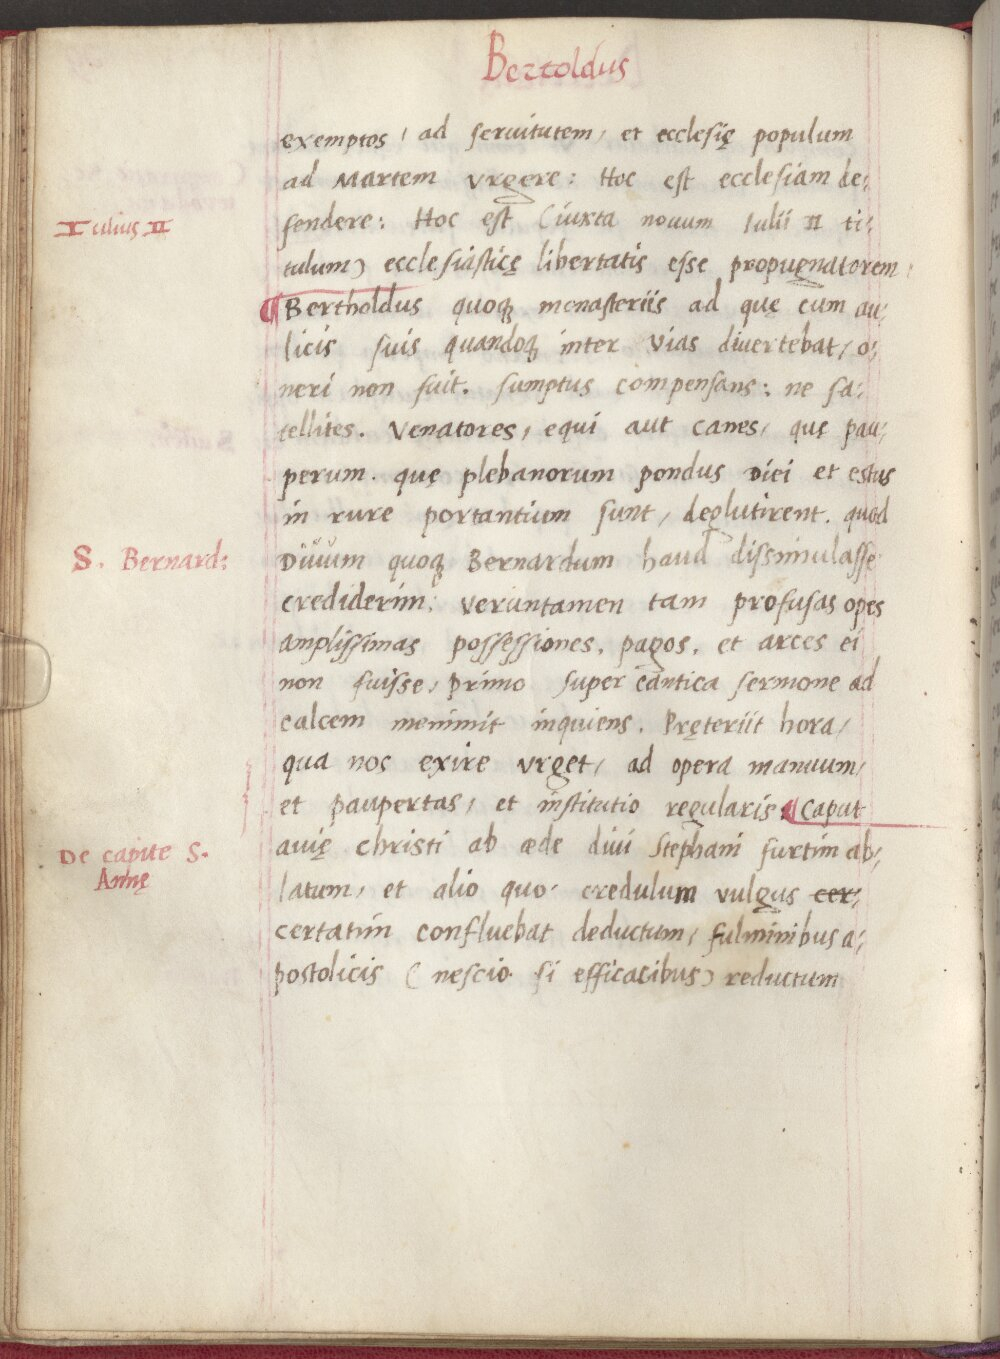 Bertoldus
exemptos, ad seruitutem, et ecclesię populum
ad Martem vrgere: Hoc est ecclesiam de:
fendere: Hoc est (iuxta nouum Iulii II ti:
Iulius II
tulum) ecclesiasticę libertatis esse propugnatorem:
¶ Bertholdus quoq; monasteriis ad quę cum au:
licis suis quandoq; inter vias diuertebat, o:
neri non fuit. sumptus compensans: ne sa:
tellites. Venatores, equi aut canes, quę pau:
perum. quę plebanorum pondus diei et estus
in rure portantium sunt, deglutirent. quod
S. Bernard:
Diuum quoq; Bernardum haud dissimulasse
crediderim: veruntamen tam profusas opes
amplissimas possessiones, pagos, et arces ei
non fuisse, primo super cantica sermone ad
calcem meminit inquiens. Pręteriit hora,
qua nos exire vrget, ad opera manuum,
et paupertas, et institutio regularis. ¶ Caput
De capite S.
Annę
auię christi ab æde diui Stephani furtim ab:
latum, et alio quo credulum vulgus cer:
certatim confluebat deductum, fulminibus a:
postolicis (nescio si efficacibus) reductum